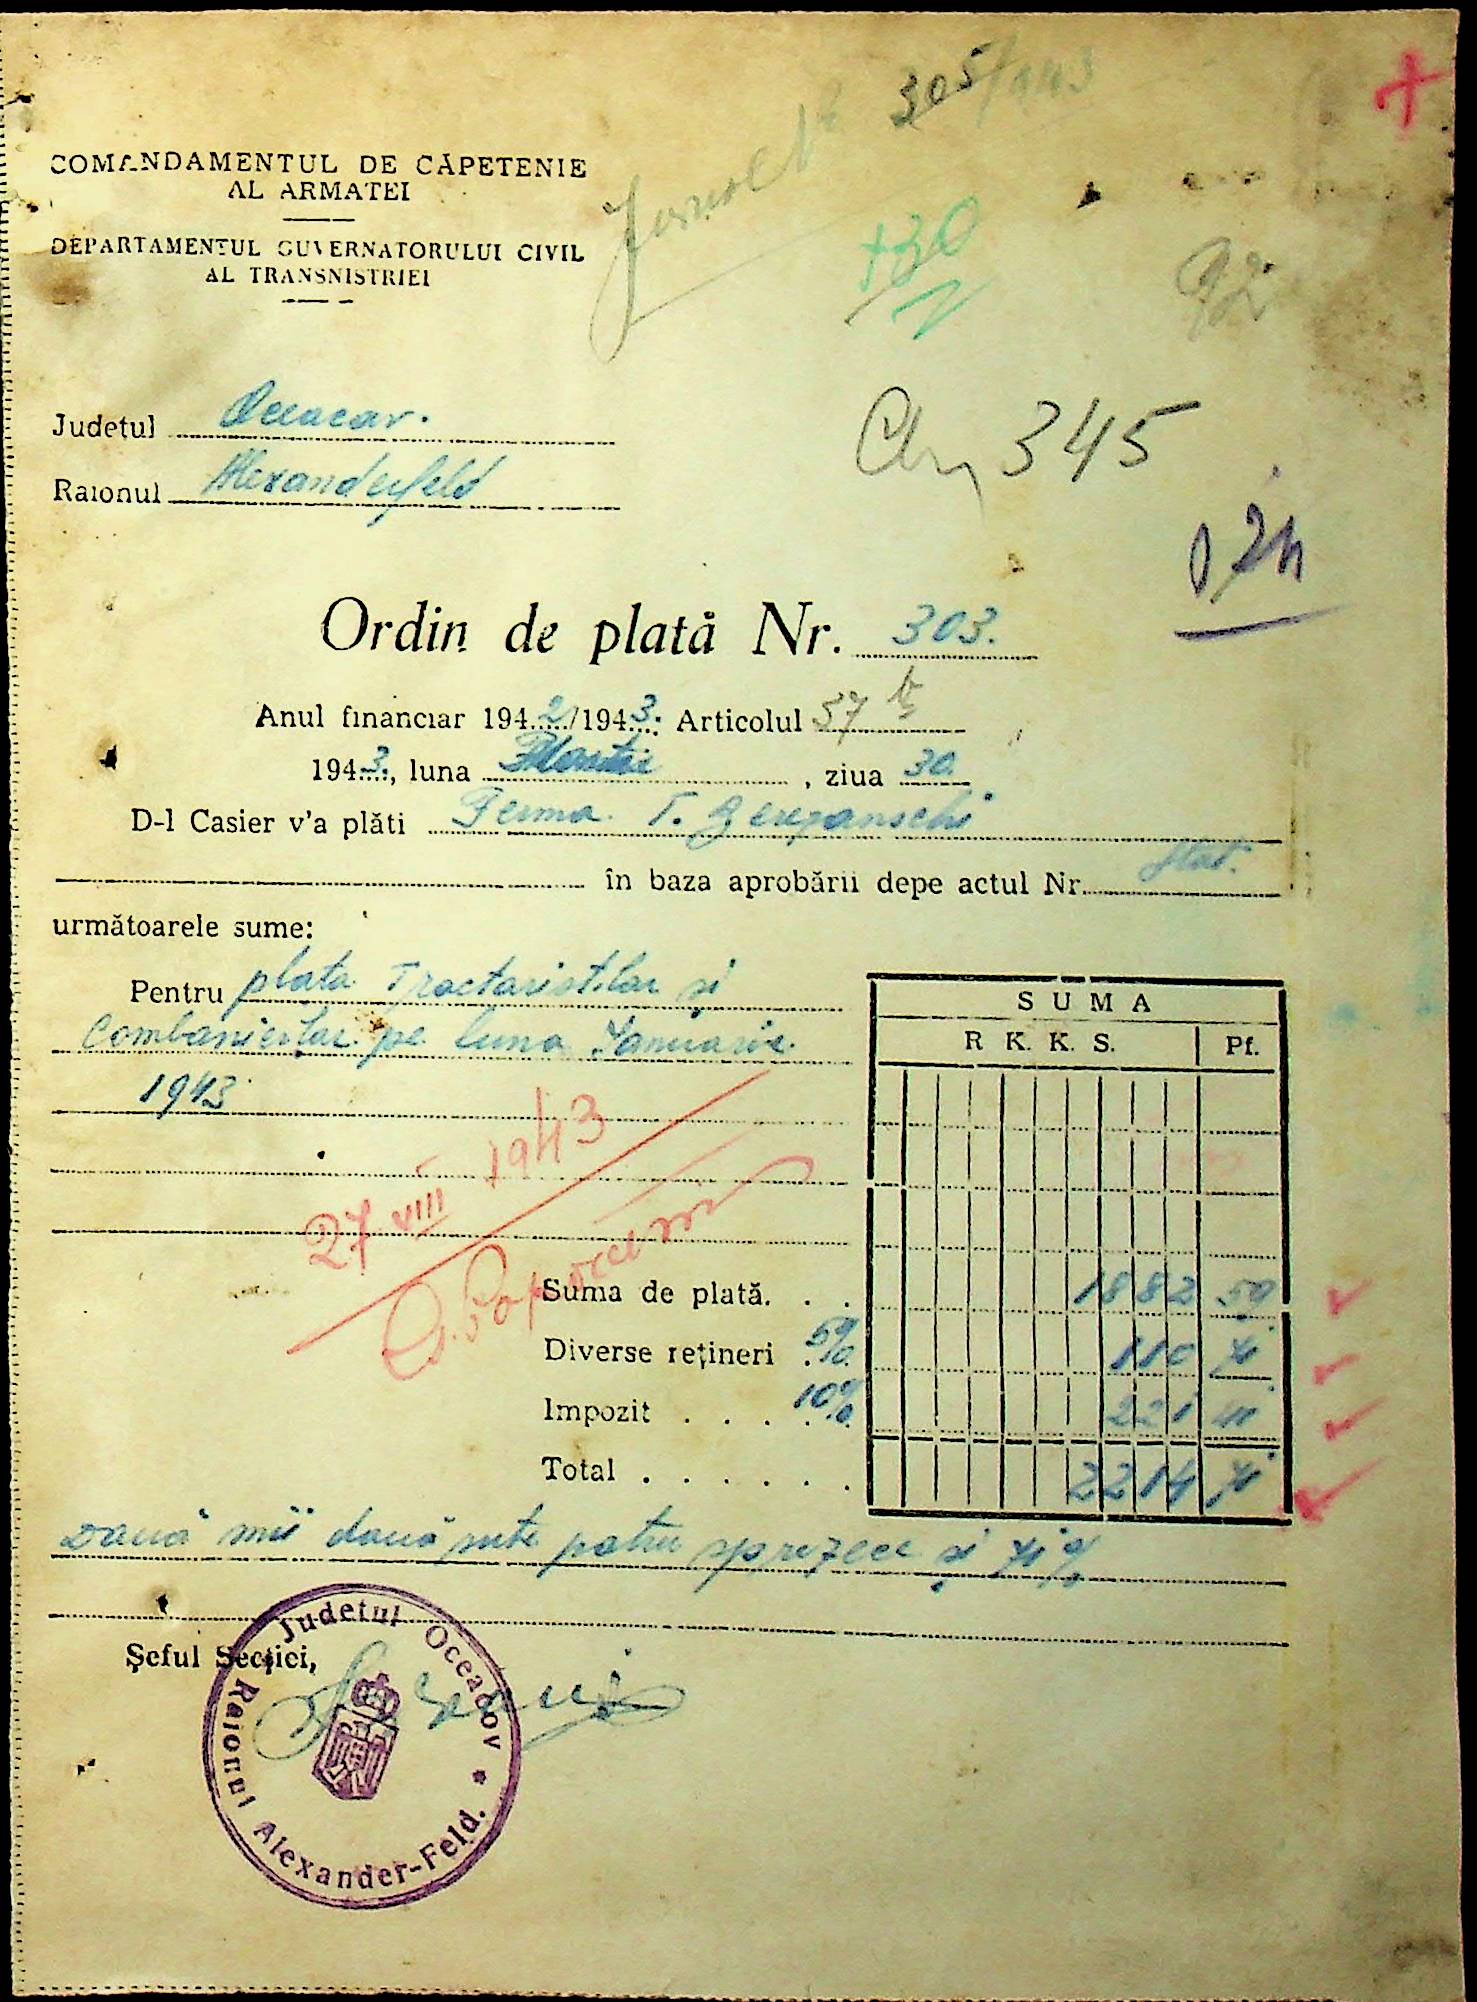 305/943
Jurnal Nr
COMANDAMENTUL DE CĂPETENIE
AL ARMATEI
DEPARTAMENTUL GUVERNATORULUI CIVIL
AL TRANSNISTRIEI
+30
92
Judeţul Oceacov.
Raionul Alexanderfeld
345
Ordin de plată Nr. 303.
Anul financiar 1942/1943. Articolul 57 b
1943., luna Martie, ziua 30.
D-l Casier v'a plăti Ferma T.
în baza aprobării depe actul Nr. stat.
următoarele sume:
Pentru plata Tractoristilor și
Combanierilor pe luna Ianuarie
1943
SUMA
R K. K. S. Pf.
27 VIII 1943
Suma de plată. . . 1882 59
Diverse reţineri 5% 110 71
Impozit . . . . 10% 221 41
Total . . . . . . . 2214 71
Două mii două sute patru sprezece și 71%
Şeful Secţiei,
Judeţul Oceacov * Raionul Alexander-Feld.